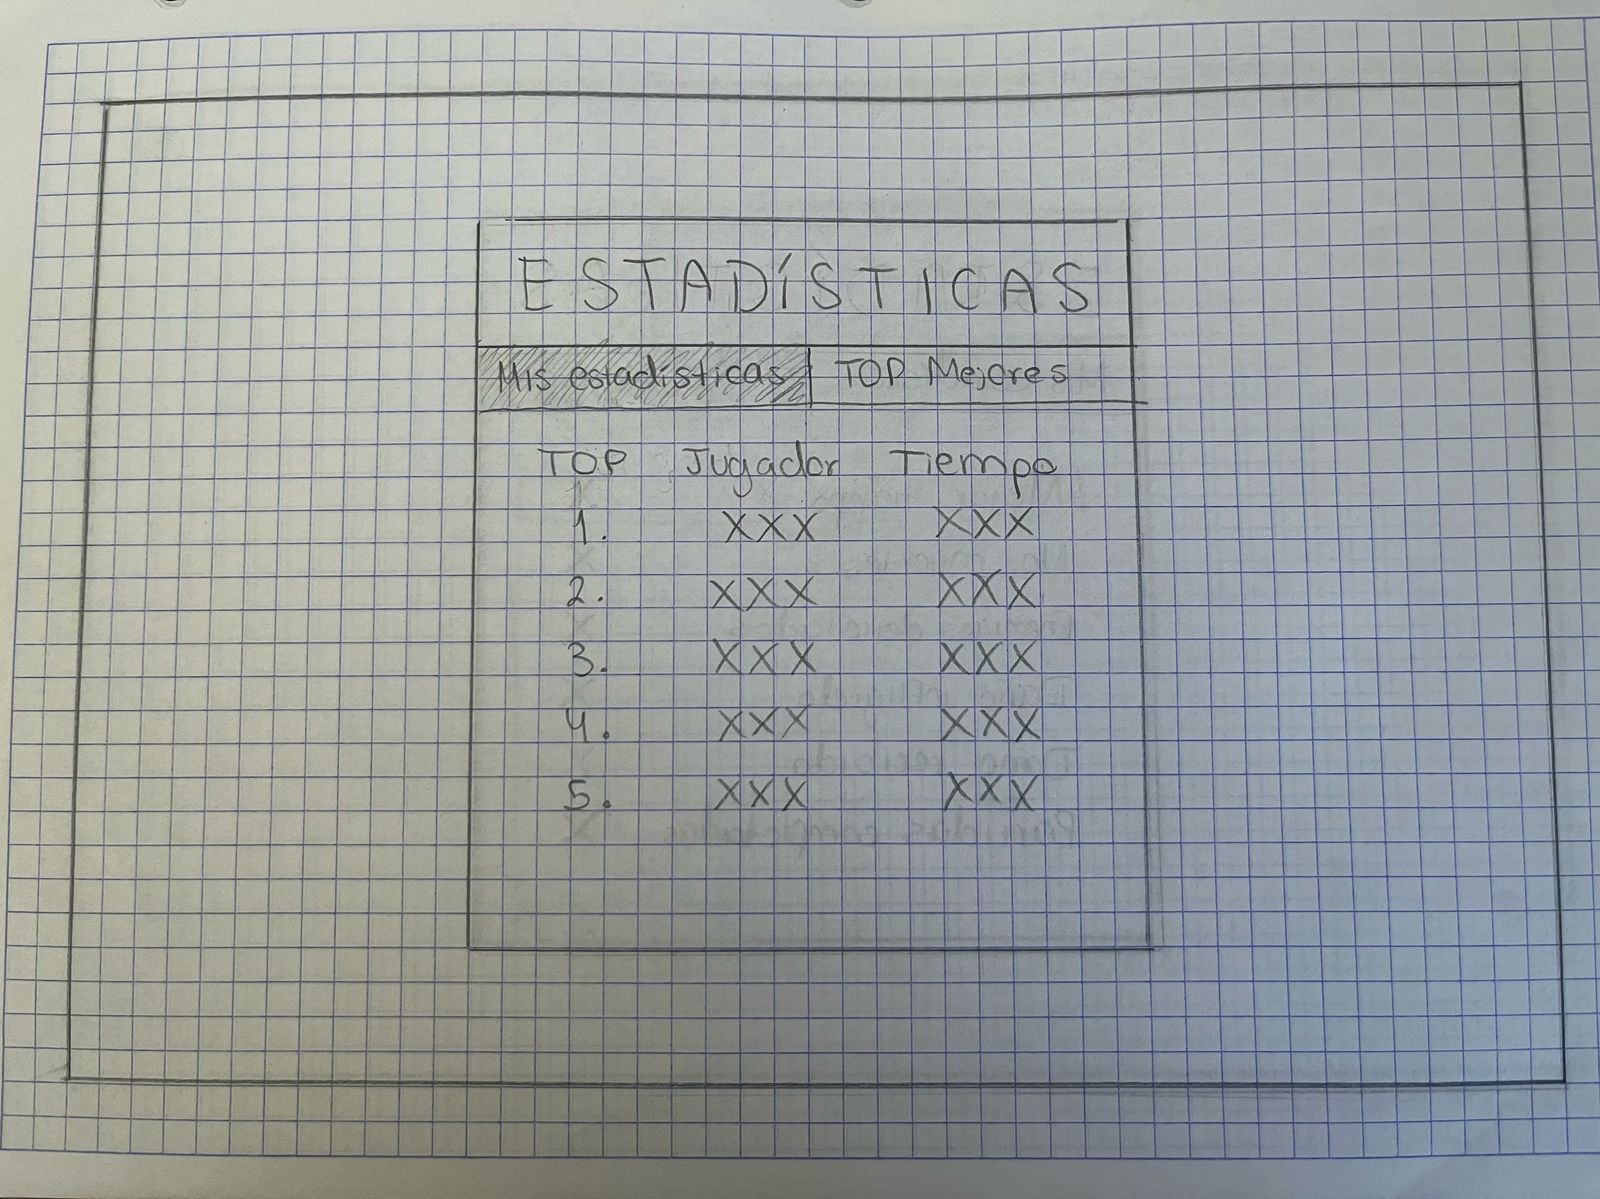 ESTADÍSTICAS
Mis estadísticas TOP Mejores
TOP Jugador Tiempo
1. XXX XXX
2. XXX XXX
3. XXX XXX
4. XXX XXX
5. XXX XXX